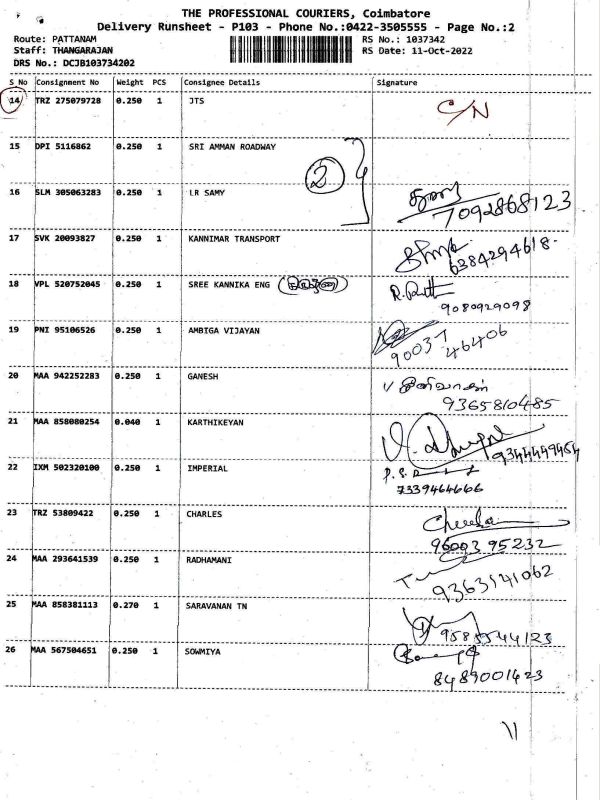 THE PROFESSIONAL COURIERS, Coimbatore
Delivery Runsheet - P103 - Phone No.:0422-3505555 - Page No.:2
Route: PATTANAM RS No.: 1037342
Staff: THANGARAJAN RS Date: 11-Oct-2022
DRS No.: DCJB103734202
S No Consignment No Weight PCS Consignee Details Signature
14 TRZ 275079728 0.250 1 JTS C/N
15 DPI 5116862 0.250 1 SRI AMMAN ROADWAY
2
16 SLM 305063283 0.250 1 LR SAMY
7092868123
17 SVK 20093827 0.250 1 KANNIMAR TRANSPORT
6384294618
18 VPL 520752045 0.250 1 SREE KANNIKA ENG
9080929098
19 PNI 95106526 0.250 1 AMBIGA VIJAYAN
90037
46406
20 MAA 942252283 0.250 1 GANESH
9365810485
21 MAA 858080254 0.040 1 KARTHIKEYAN
9344449464
22 IXM 502320100 0.250 1 IMPERIAL
7339464666
23 TRZ 53809422 0.250 1 CHARLES
96003 95232
24 MAA 293641539 0.250 1 RADHAMANI
9363141062
25 MAA 858381113 0.270 1 SARAVANAN TN
9585544123
26 MAA 567504651 0.250 1 SOWMIYA
8489001423
11